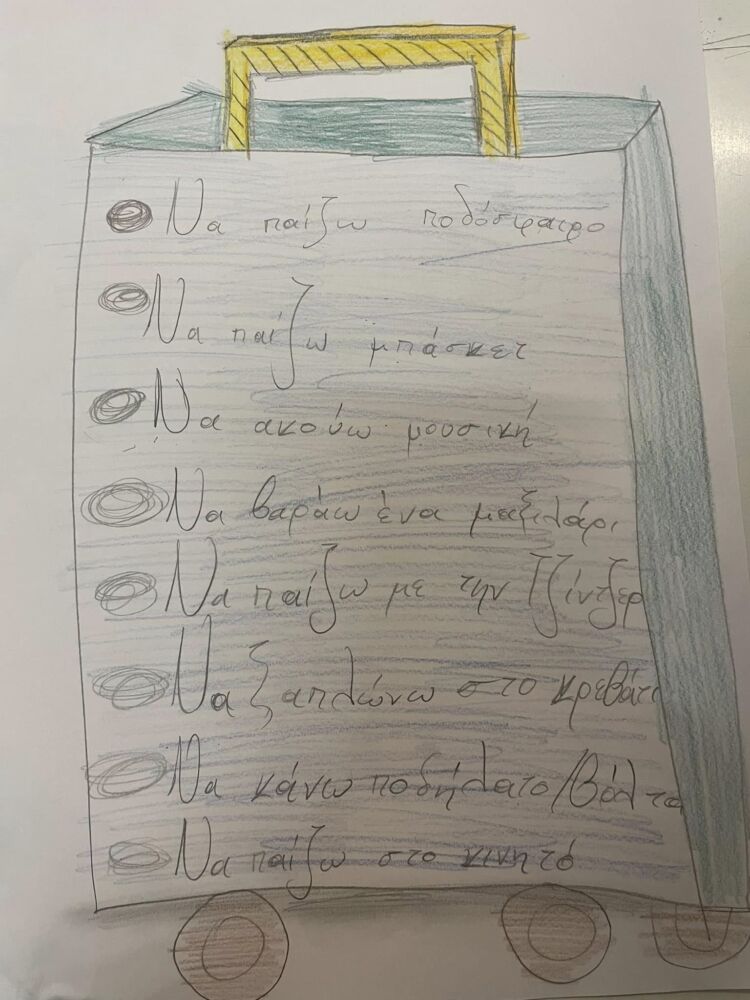 Να παίζω ποδόσφαιρο
Να παίζω μπάσκετ
Να ακούω μουσική
Να βαράω ένα μαξιλάρι
Να παίζω με την Τζίντζερ
Να ξαπλώνω στο κρεβάτι
Να κάνω ποδήλατο/βόλτα
Να παίζω στο κινητό